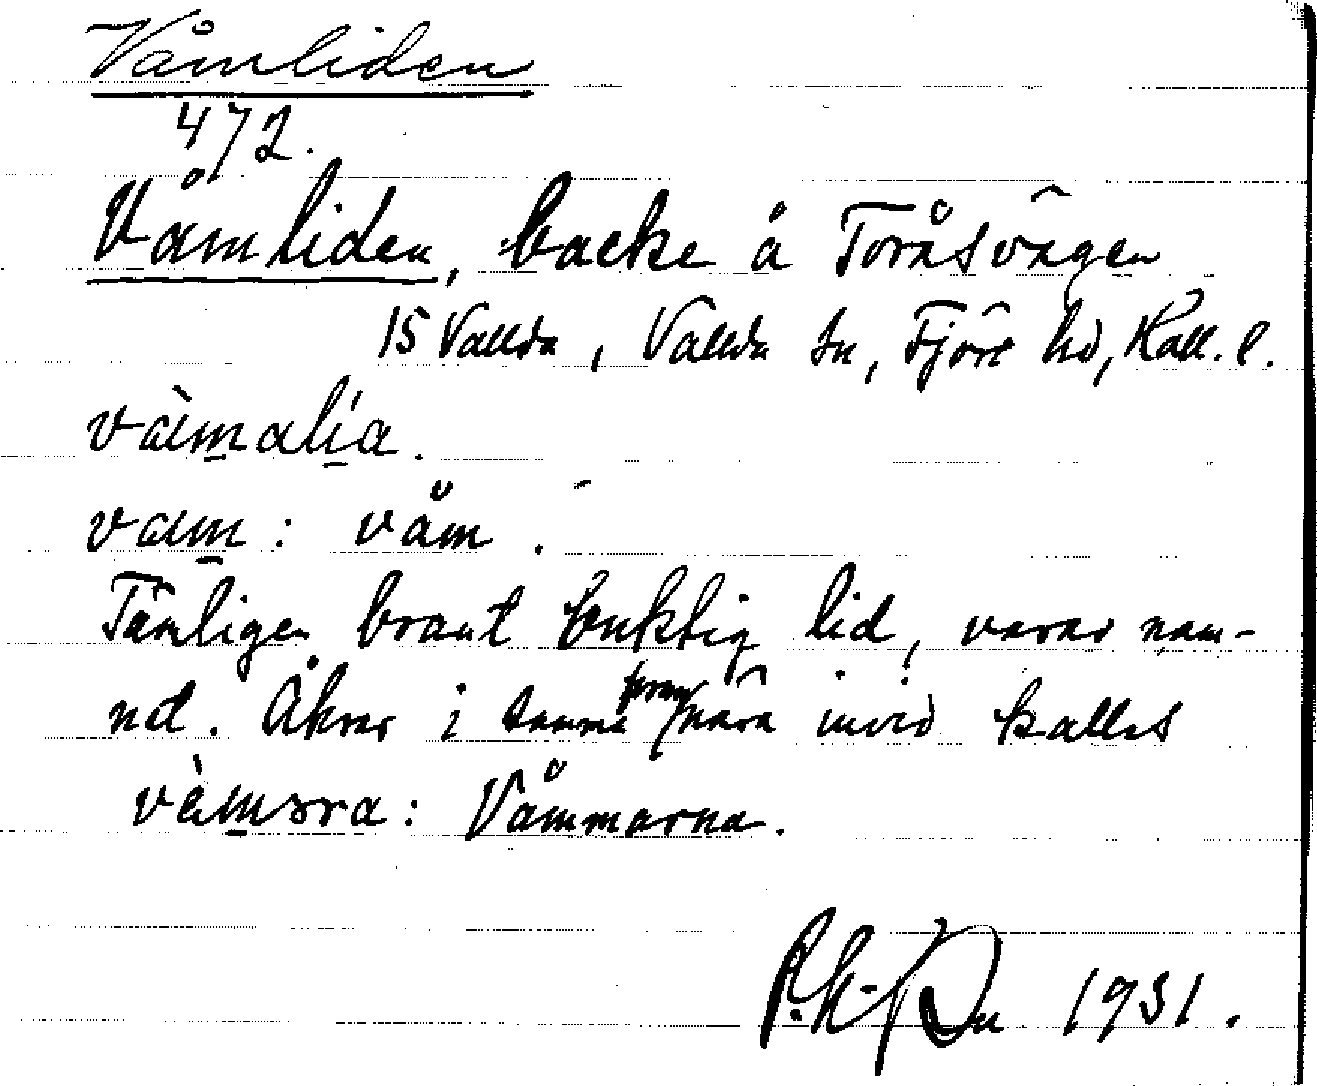 Våmliden
472.
Våmliden, backe å Toråsvägen
15 Vallda, Vallda sn, Fjäre hd, Hall. l.
vàmalía.
vam: våm.
Tämligen brant buktig lid, varav nam-
net. Åkrar i samma nära invid kallas
vàmsra: Våmmarna.
1931.